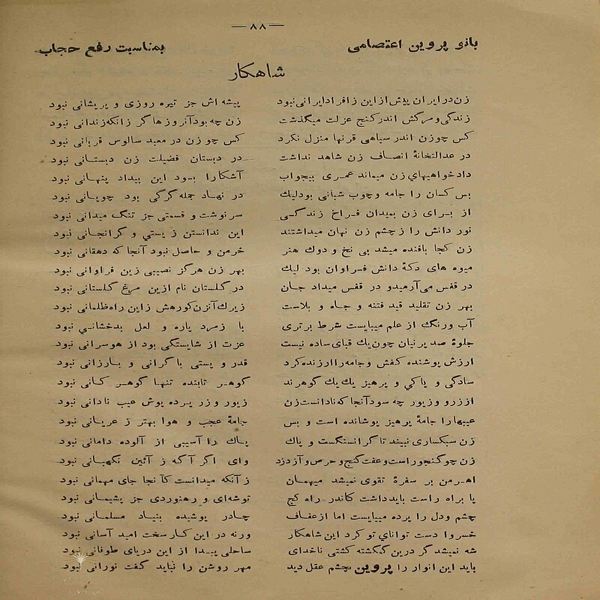 — ۸۸ —
بانو پروین اعتصامی
بمناسبت رفع حجاب
شاهکار
زن در ایران پیش از این زافراد ایرانی نبود پیشه اش جز تیره روزی و پریشانی نبود
زندگی و مرگش اندر کنج عزلت میگذشت زن چه بود آنروزها گر زانکه زندانی نبود
کس چو زن اندر سیاهی قرنها منزل نکرد کس چو زن در معبد سالوس قربانی نبود
در عدالتخانهٔ انصاف زن شاهد نداشت در دبستان فضیلت زن دبستانی نبود
دادخواهیهای زن میماند عمری بیجواب آشکارا بود این بیداد پنهانی نبود
بس کسان را جامه و چوب شبانی بود لیک در نهاد جمله گرگی بود چوپانی نبود
از برای زن بمیدان فراخ زندگی سرنوشت و قسمتی جز تنگ میدانی نبود
نور دانش را ز چشم زن نهان میداشتند این ندانستن ز پستی و گرانجانی نبود
زن کجا بافنده میشد بی نخ و دوك هنر خرمن و حاصل نبود آنجا که دهقانی نبود
میوه های دکهٔ دانش فراوان بود لیك بهر زن هرگز نصیبی زین فراوانی نبود
در قفس می آرمید و در قفس میداد جان در گلستان نام ازین مرغ گلستانی نبود
بهر زن تقلید قید فتنه و چاه و بلاست زیرك آنزن کو رهش زاین راه ظلمانی نبود
آب و رنگ از علم میبایست شرط برتری با زمرد یاره و لعل بدخشانی نبود
جلوهٔ صد پرنیان چون یك قبای ساده نیست عزت از شایستگی بود از هوسرانی نبود
ارزش پوشنده کفش و جامه را ارزنده کرد قدر و پستی با گرانی و بارزانی نبود
سادگی و پاکی و پرهیز یك یك گوهرند گوهر تابنده تنها گوهر کانی نبود
از زر و زیور چه سود آنجا که نادانست زن زیور و زر پرده پوش عیب نادانی نبود
عیبها را جامهٔ پرهیز پوشانده است و بس جامهٔ عجب و هوا بهتر ز عریانی نبود
زن سبکساری نبیند تا گرانسنگست و پاك پاك را آسیبی از آلوده دامانی نبود
زن چو گنجور است و عفت گنج و حرص و آز دزد وای اگر آگه ز آئین نگهبانی نبود
اهرمن بر سفرهٔ تقوی نمیشد میهمان ز آنکه میدانست کآنجا جای مهمانی نبود
پا براه راست باید داشت کاندر راه کج توشه ای و رهنوردی جز پشیمانی نبود
چشم و دل را پرده میبایست اما از عفاف چادر پوشیده بنیاد مسلمانی نبود
خسروا دست توانای تو کرد این شاهکار ورنه در این کار سخت امید آسانی نبود
شه نمیشد گر درین گمگشته کشتی ناخدای ساحلی پیدا از این دریای طوفانی نبود
باید این انوار را پروین بچشم عقل دید مهر روشن را نباید گفت نورانی نبود